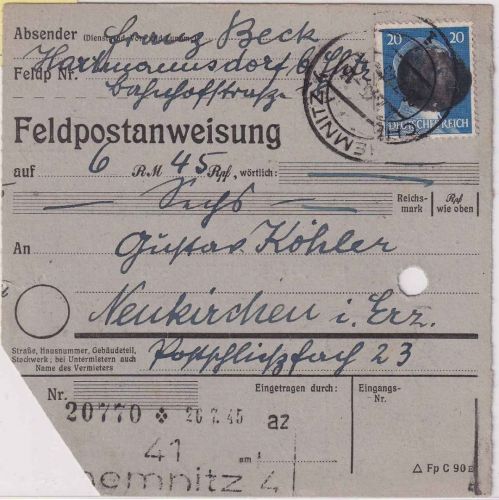 Absender (Dienstgrad, Vor- und Zuname)
Franz Beck
Feldp Nr.
Hartmannsdorf b Chtz
Bahnhofstraße
20 20
DEUTSCHES REICH
CHEMNITZ
Feldpostanweisung
auf 6 RM 45 Rpf, wörtlich:
Sechs
Reichs- mark Rpf wie oben
An Gustav Köhler
Neukirchen i. Erz.
Postschließfach 23
Straße, Hausnummer, Gebäudeteil,
Stockwerk; bei Untermietern auch
Name des Vermieters
Nr. Eingetragen durch: Eingangs- Nr.
20770 26 7.45 az
41 am
Chemnitz 4
△ Fp C 90